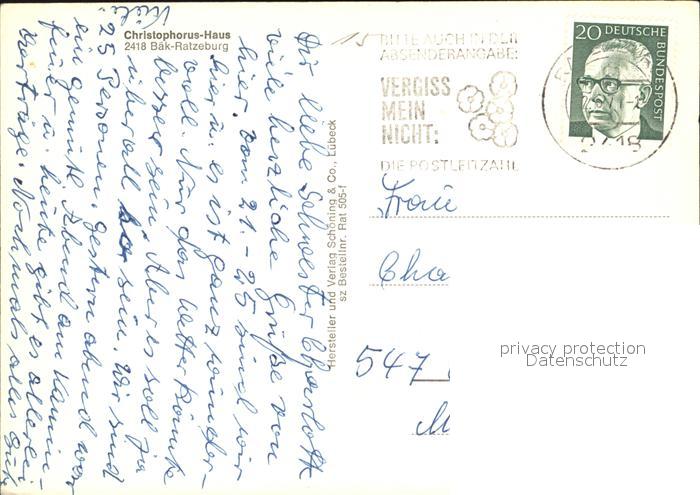 Christophorus-Haus
2418 Bäk-Ratzeburg
Dir liebe Schwester Charlott
viele herzliche Grüße von
hier. Vom 21. - 25 sind wir
hier u. es ist ganz wunder-
voll. Nur das Wetter könnte
besser sein. Aber es soll ja
überall so sein. Wir sind
25 Personen. Gestern abend war
ein gemütl. Abend am Kamin-
feuer u. heute gibt es allerlei
Vorträge. Nochmals alles Gute
Hersteller und Verlag Schöning & Co., Lübeck
sz Bestellnr. Rat 505-f
15
BITTE AUCH IN DER
ABSENDERANGABE:
VERGISS
MEIN
NICHT:
DIE POSTLEITZAHL
20 DEUTSCHE
BUNDESPOST
2418
Frau
Cha
547
M
privacy protection
Datenschutz